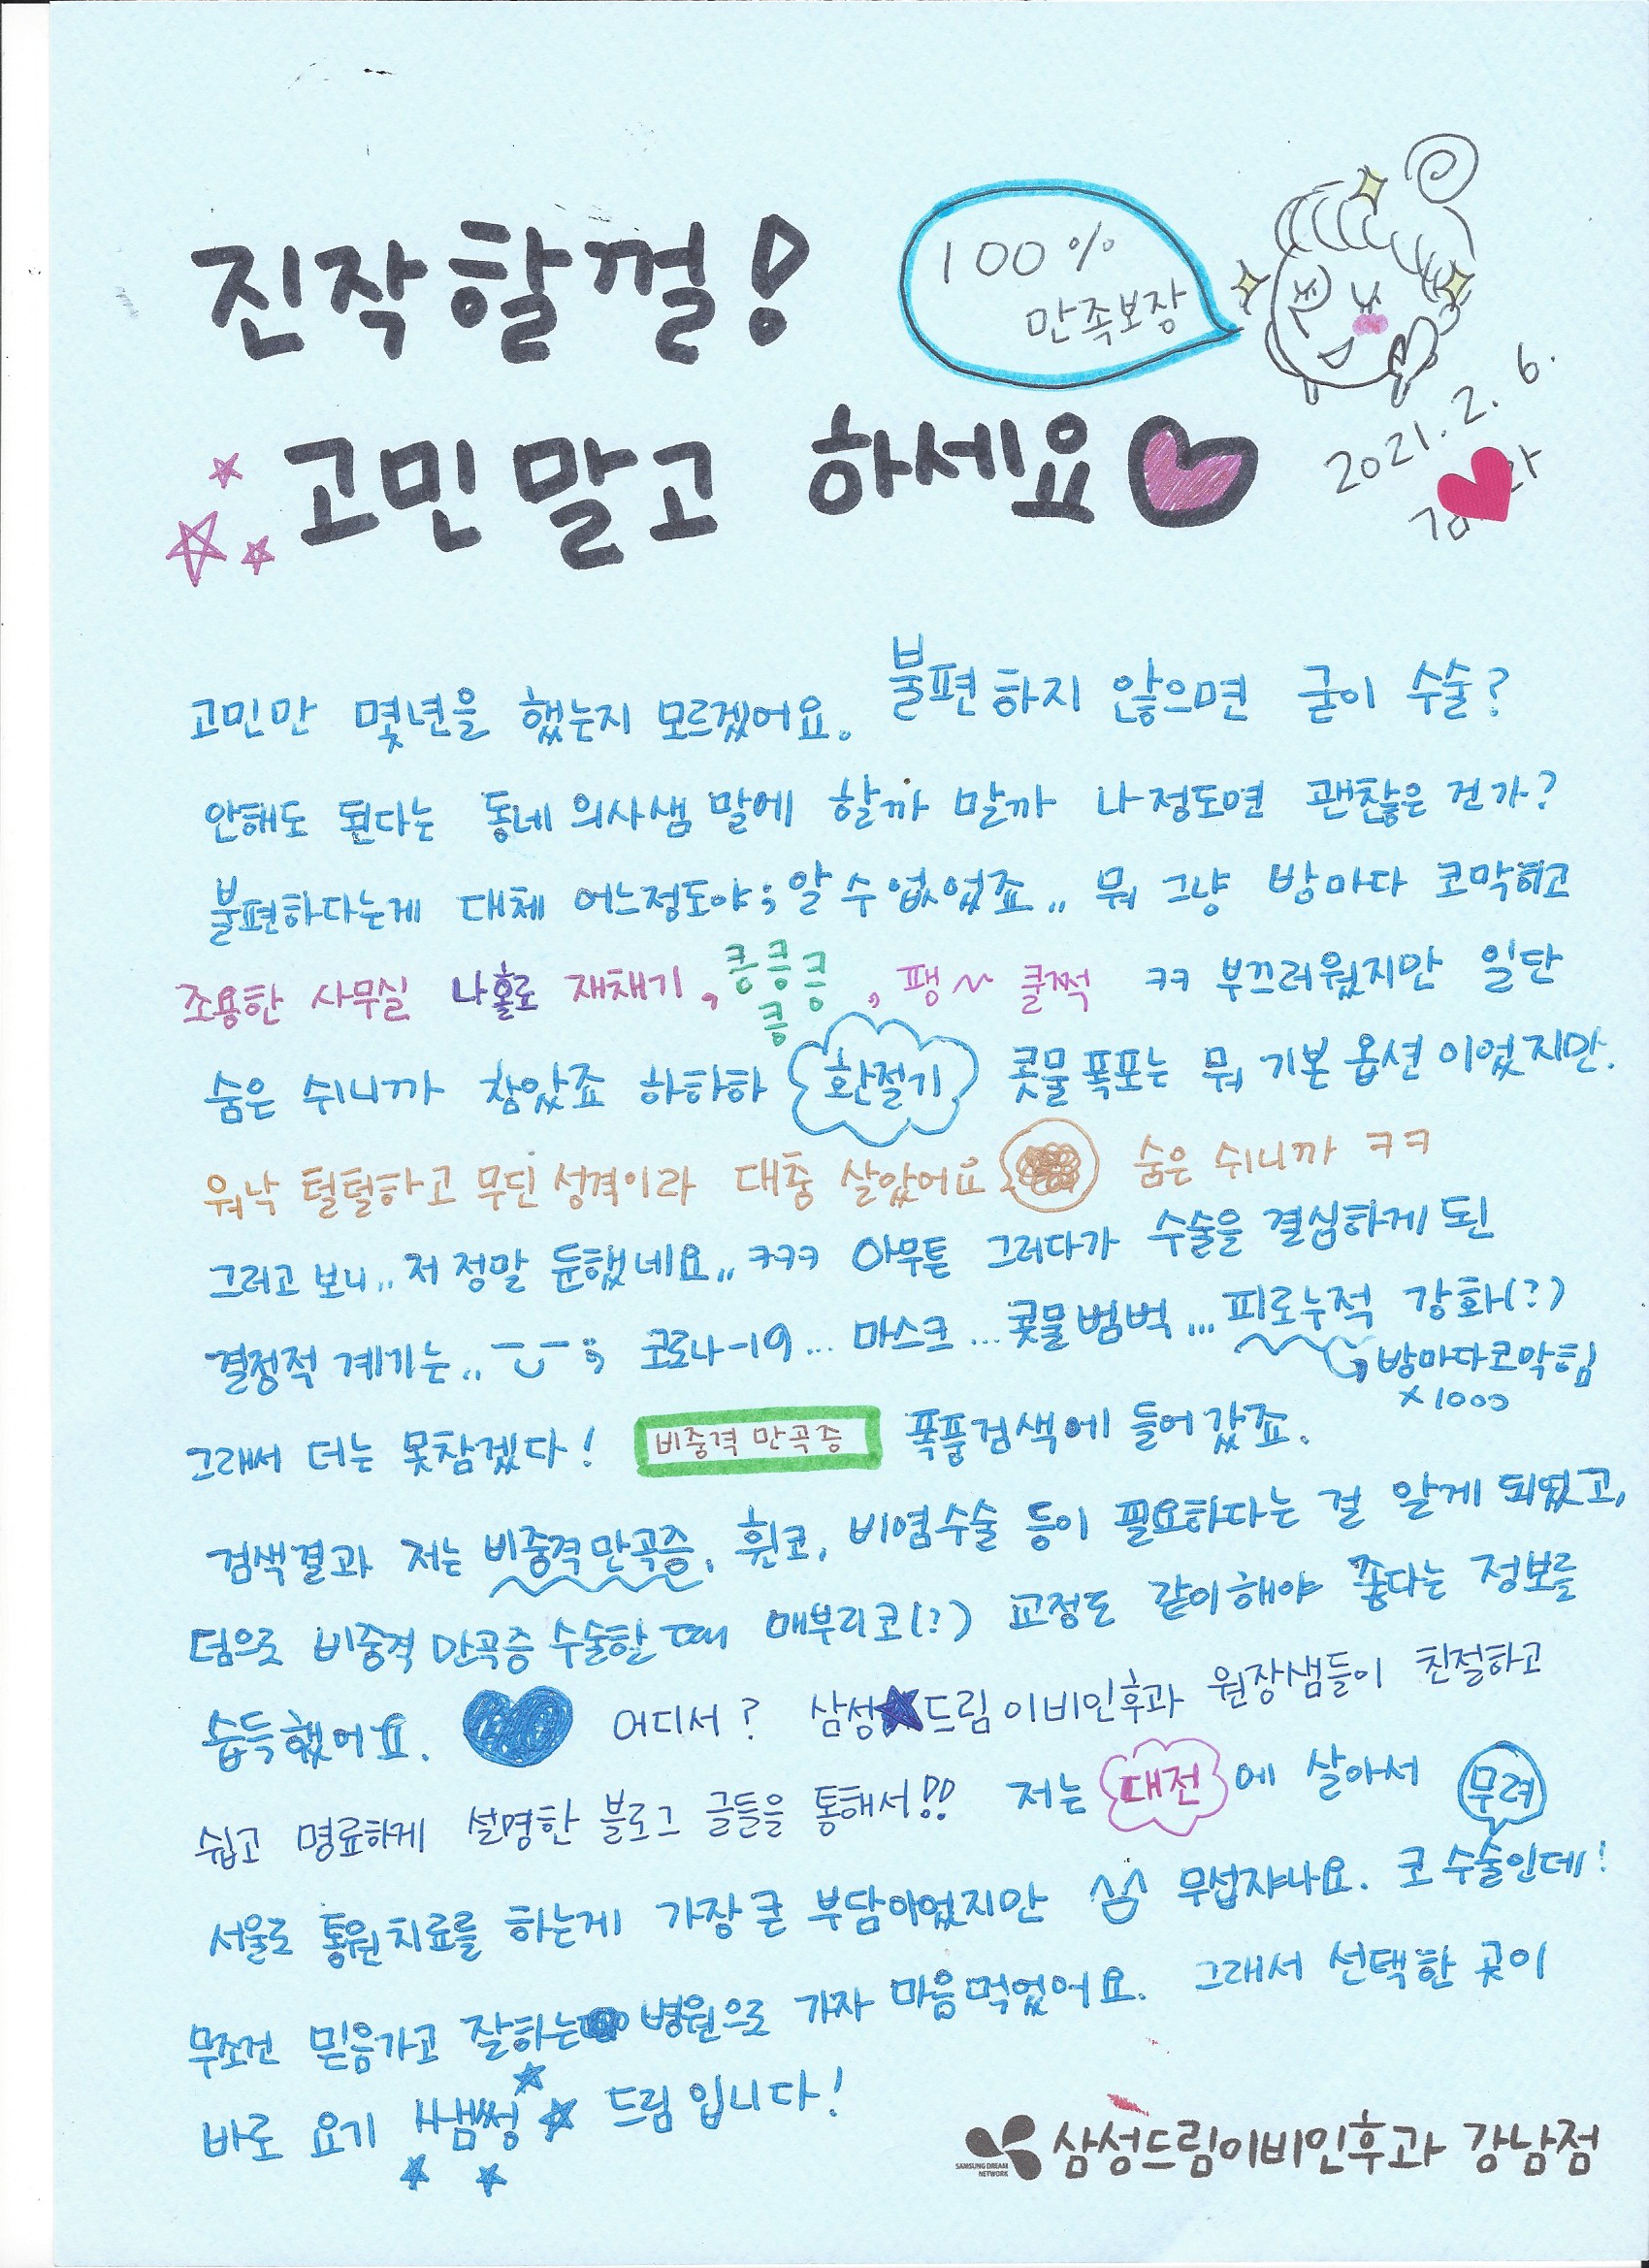 진작할껄!
100%
만족보장
고민말고 하세요
2021. 2. 6.
고민만 몇년을 했는지 모르겠어요. 불편하지 않으면 굳이 수술?
안해도 된다는 동네 의사샘 말에 할까 말까 나정도면 괜찮은 건가?
불편하다는게 대체 어느정도야; 알 수 없었죠.. 뭐 그냥 밤마다 코막히고
조용한 사무실 나홀로 재채기, 킁킁킁킁, 팽~ 쿨쩍 ㅋㅋ 부끄러웠지만 일단
숨은 쉬니까 참았죠 하하하 환절기 콧물폭포는 뭐 기본 옵션이었지만.
워낙 털털하고 무딘 성격이라 대충 살았어요 숨은 쉬니까 ㅋㅋ
그러고 보니.. 저 정말 둔했네요.. ㅋㅋㅋ 아무튼 그러다가 수술을 결심하게 된
결정적 계기는.. 코로나-19... 마스크... 콧물범벅... 피로누적 강화(?)
밤마다코막힘
x1000
그래서 더는 못참겠다! 비중격 만곡증 폭풍검색에 들어갔죠.
검색결과 저는 비중격만곡증, 휜코, 비염수술 등이 필요하다는 걸 알게 되었고,
덤으로 비중격 만곡증 수술할 때 매부리코(?) 교정도 같이해야 좋다는 정보를
습득했어요. 어디서? 삼성드림이비인후과 원장샘들이 친절하고
쉽고 명료하게 설명한 블로그 글들을 통해서!! 저는 대전에 살아서 무려
서울로 통원치료를 하는게 가장 큰 부담이었지만 무섭쟈나요. 코 수술인데!
무조건 믿음가고 잘하는 병원으로 가자 마음먹었어요. 그래서 선택한 곳이
바로 요기 쌤썽 드림입니다!
SAMSUNG DREAM NETWORK 삼성드림이비인후과 강남점